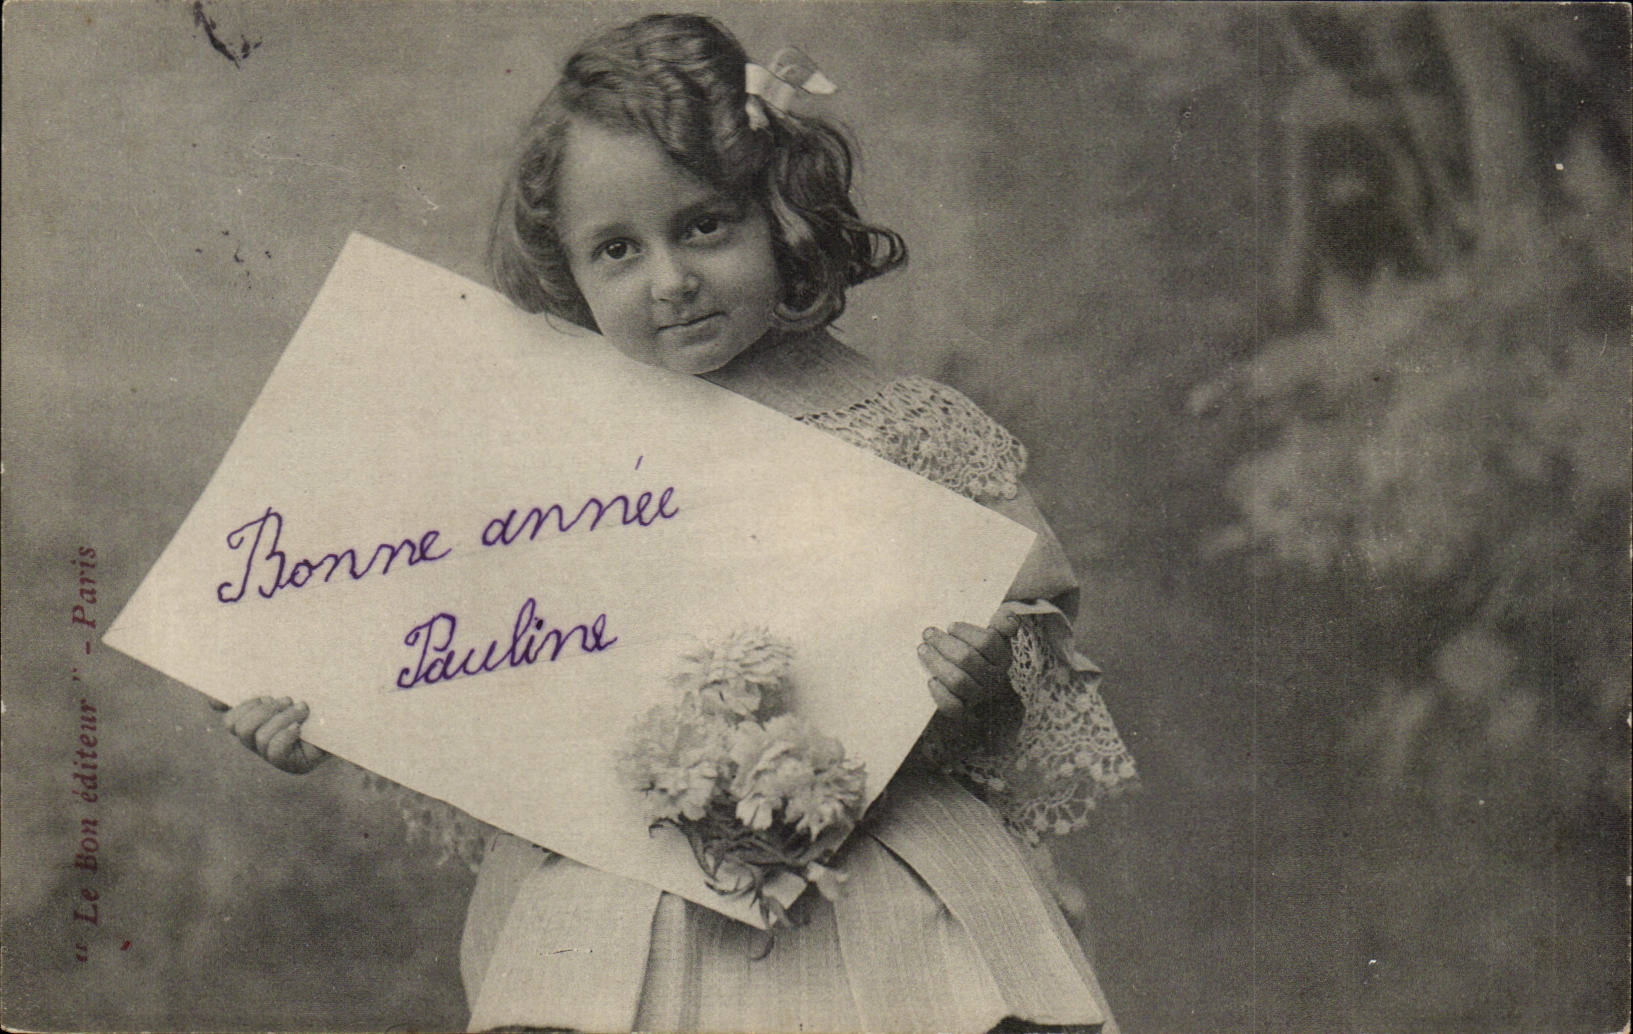 Bonne année
Pauline
“ Le Bon éditeur ” - Paris